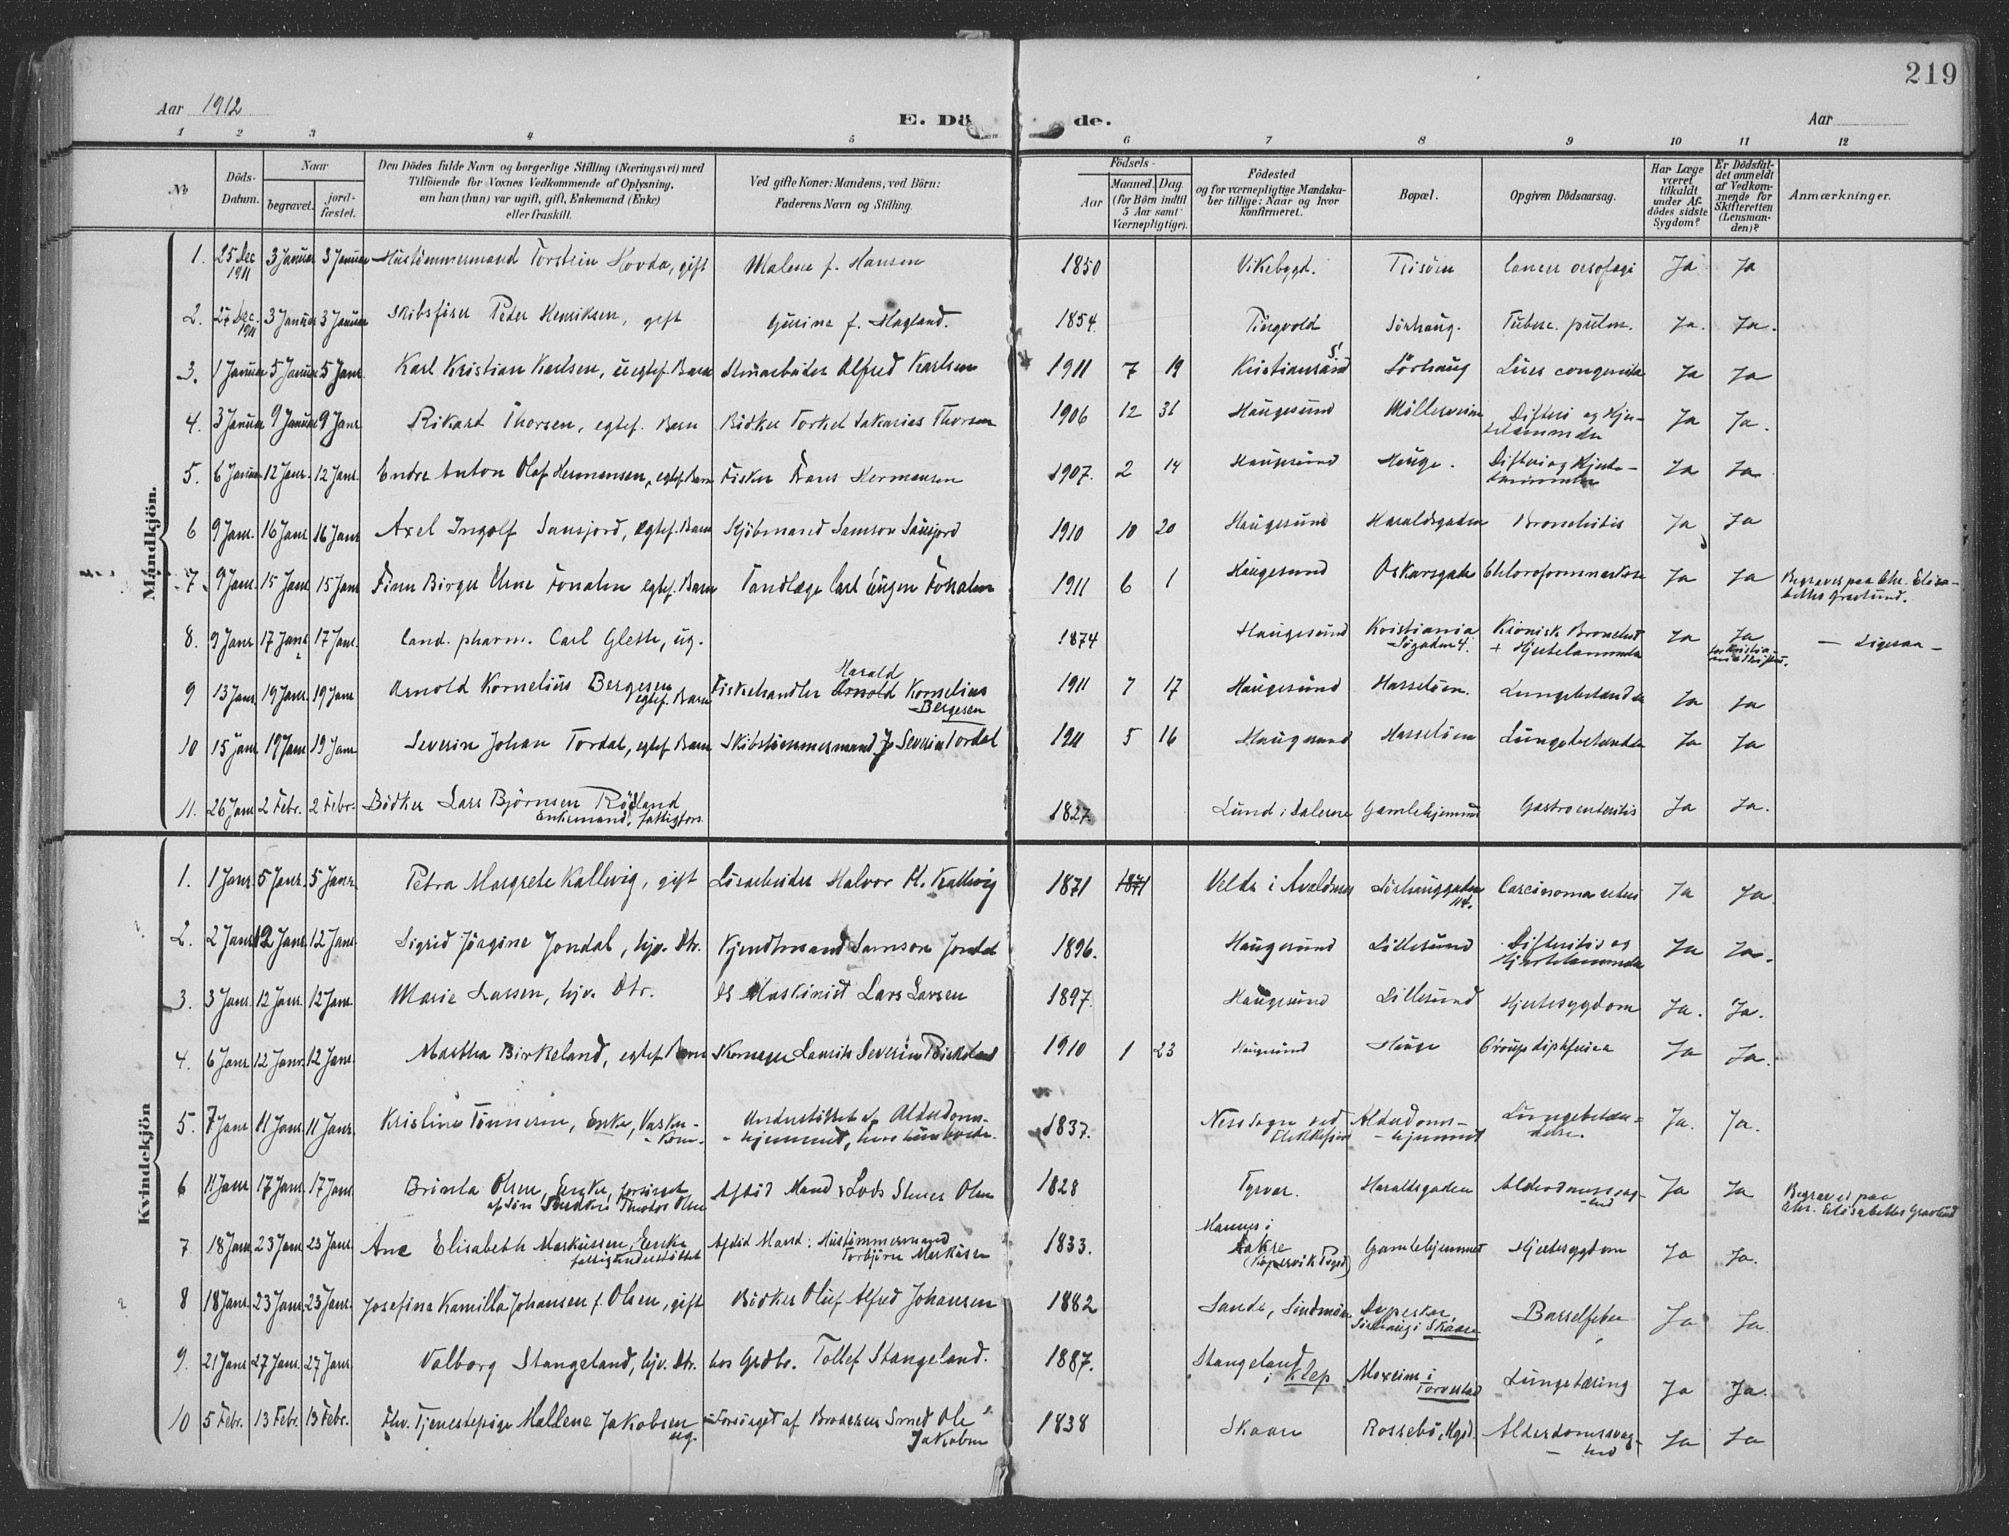 219
Aar 1912
E. Dö de.
Aar
1 2 3 4 5 6 7 8 9 10 11 12
No
Döds-Datum.
Naar
begravet.
jordfæstet.
Den Dödes fulde Navn og borgerlige Stilling (Næringsvei) med
Tilföiende for Voxnes Vedkommende af Oplysning,
om han (hun) var ugift, gift, Enkemand (Enke)
eller fraskilt.
Ved gifte Koner: Mandens, ved Börn:
Faderens Navn og Stilling.
Födsels-
Aar
Maaned. Dag
(for Börn indtil
5 Aar samt
Værnepligtige).
Födested
og for værnepligtige Mandskaber tillige: Naar og hvor
konfirmeret.
Bopæl.
Opgiven Dödsaarsag.
Har Læge
været
tilkaldt
under Afdödes sidste
Sygdom?
Er Dödsfaldet anmeldt
af Vedkommende for
Skifteretten
(Lensmanden)?
Anmærkninger.
Mandkjön.
1. 25 Dec 1911 3 Januar 3 Januar Hustømmermand Torstein Hovda, gift Malene f. Hansen 1850 Vikebygd. Risöen Cancer oesofagi Ja Ja
2. 27 Dec. 1911 3 Januar 3 Januar Skibsfører Peder Henriksen, gift Gurine f. Hagland. 1854. Tingvold Sörhaug. Tuberc. pulm. Ja. Ja.
3. 1 Januar 5 Januar 5 Janr Karl Kristian Karlsen, uegtef. Barn Stuarbeider Alfred Karlsen 1911 7 19 Kristianssand S! Sörhaug Lues congenita Ja Ja
4. 3 Januar 9 Januar 9 Janr Rikart Thorsen, egtef. Barn Bödker Torkel Sakarias Thorsen 1906 12 31 Haugesund Möllerveien Difteri og Hjertelammelse Ja Ja.
5. 6 Januar 12 Janr. 12 Janr. Endre Anton Olaf Hermansen, egtef. Barn Fisker Hermansen 1907. 2 14 Haugesund Hauge. Difteri og Hjertelammelse Ja Ja
6 9 Janr. 16 Janr 16 Janr Axel Ingolf Sansjord, egtef. Barn Kjöbmand Samson Sansjord 1910 10 20 Haugesund Haraldsgaden Bronchitis Ja Ja
7. 9 Janr. 15 Janr 15 Janr Finn Birger Fonahn egtef. Barn Tandlæge Carl Eugen Fonahn 1911 6 1 Haugesund Oskarsgate Chloroformnarkose Ja Ja Begraves paa Chr. Elisabeths Gravlund.
8. 9 Janr 17 Janr 17 Janr. Cand. pharm. Carl Glette, ug. 1874 Haugesund Kristiania 4. Kronisk Bronchit + Hjertelammelse Ja Ja — Ligesaa —
9 13 Janr. 19 Janr. 19 Janr Arnold Kornelius Bergesen egtef. Barn Fiskehandler Harald Arnold Kornelius Bergesen 1911 7 17 Haugesund Hasselöen. Lungebetændelse Ja Ja
10 15 Janr 19 Janr 19 Janr Severin Johan Tordal, egtef. Barn Skibstömmermand Severin Tordal 1911 5 16 Haugesund Hasselöen Lungebetændelse Ja Ja
11. 26 Janr 2 Febr. 2 Febr. Bödker Lars Björnsen Rödland Enkemand, fattigfors. 1827. Lund i Dalerne Gamlehjemmet Gastroenteritis Ja Ja.
Kvindekjön
1. 1 Janr 5 Janr. 5 Janr. Petra Margrete Kallevig, gift Lösarbeider Halvor H. Kallevig 1871 1871 Velde i Avaldsnes Sörhauggaden 114. Carcinoma uteri Ja Ja.
2. 2 Janr 12 Janr. 12 Janr. Sigrid Jörgine Jondal, hjv. Dtr. Kjendtmand Samson Jondal 1896. Haugesund Lillesund Difteritis og Hjertelammelse Ja Ja.
3. 3 Janr. 12 Janr. 12 Janr. Marie Larsen, hjv. Dtr. Maskinist Lars Larsen 1897. Haugesund Lillesund Hjertesygdom Ja. Ja.
4. 6 Janr 12 Janr. 12 Janr. Martha Birkeland, egtef. Barn Skomager Laurits Severin Birkeland 1910 1 23 Haugesund Hauge Croup diphterica Ja Ja.
5. 7 Janr 11 Janr 11 Janr. Kristine Tönnesen, Enke, Vaskerkone. Understöttet af Alderdomshjemmet, hvor hun boede. 1837. Nessogn ved Flekkefjord Alderdomshjemmet Lungebetændelse. Ja. Ja.
6 11 Janr 17 Janr. 17 Janr Brinla Olsen, Enke, forsörget af Sön Theodor Olsen Afdöd Mand: Lods Olsen 1828 Tysvær. Haraldsgaden Alderdomssvaghed Ja Ja Begravet paa Chr. Elisabeths Gravlund
7 18 Janr 23 Janr 23 Janr. Ane Elisabeth Markussen, Enke fattigunderstöttet Afdöd Mand: Hustömmermand Torbjörn Markussen 1833. Mannes i Aakre (Kopervik Pgjd) Gamlehjemmet Hjertesygdom Ja Ja.
8 18 Janr 23 Janr. 23 Janr. Josefine Kamilla Johansen f. Olsen, gift Bödker Oluf Alfred Johansen 1882 Sande, Söndmöre Sörhaug i Skaare Barselfeber Ja Ja.
9. 21 Janr 27 Janr. 27 Janr. Valborg Stangeland, hjv. Dtr. hos Grdbr. Tollef Stangeland. 1887. Stangeland i Klep Moxeim i Torvestad Lungetæring Ja Ja.
10 5 Febr. 13 Febr. 13 Febr. Fhv. Tjenestepige Mallene Jakobsen ug. Forsörget af Broderen Smed Ole Jakobsen 1838 Skaare Rossebö, Hgsd. Alderdomssvaghed Ja Ja